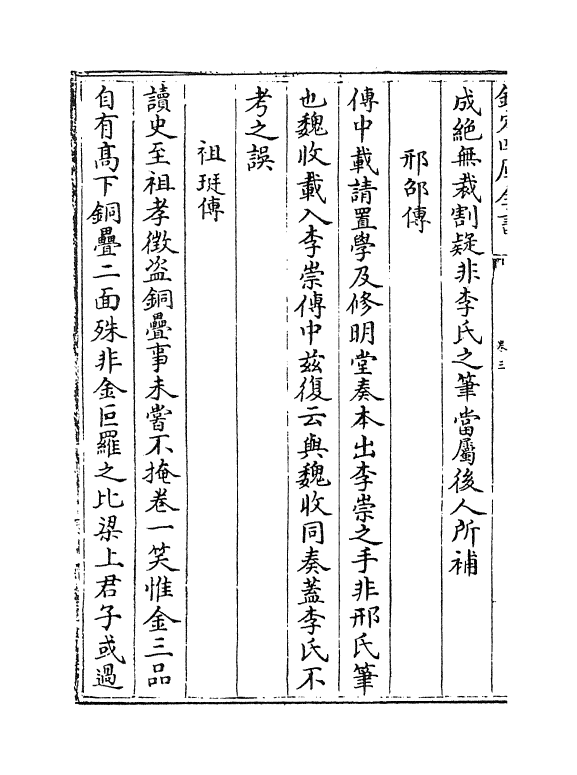 欽定四庫全書
卷三
成絶無裁割疑非李氏之筆當屬後人所補
邢邵傳
傳中載請置學及修明堂奏本出李崇之手非邢氏筆
也魏收載入李崇傳中兹復云與魏收同奏蓋李氏不
考之誤
祖珽傳
讀史至祖孝徴盗銅疊事未嘗不掩卷一笑惟金三品
自有髙下銅疊二面殊非金叵羅之比梁上君子或過